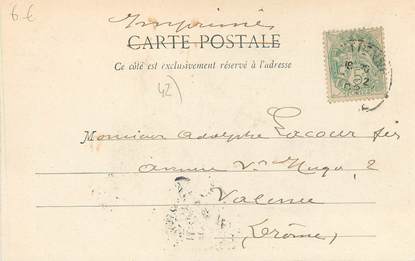 6.€
Imprimés
CARTE POSTALE
Ce côté est exclusivement réservé à l'adresse
42)
Monsieur Adolphe Lacour fils
avenue Vor Hugo, 2
Valence
(Drôme)